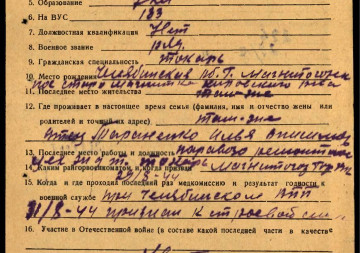 5. Образование
6. На ВУС 133
7. Должностная квалификация Нет
8. Военное звание ряд.
9. Гражданская специальность токарь
10. Место рождения Челябинская об. г. Магнитогорск
пос. Старо Магнитка Кировского р-на
11. Последнее место жительства там-же
12. Где проживает в настоящее время семья (фамилия, имя и отчество жены или
родителей и точный их адрес) там-же
отец Тарсненко Илья
13. Последнее место работы и должность паровозо ремонтный
цех токарь
14. Каким райгорвоенкоматом, и когда призван Магнитогор
29/8-44
15. Когда и где проходил последний раз медкомиссию и результат годности к
военной службе при Челябинском ВПП
31/8-44 признан к строевой
16. Участие в Отечественной войне (в составе какой последней части в качестве